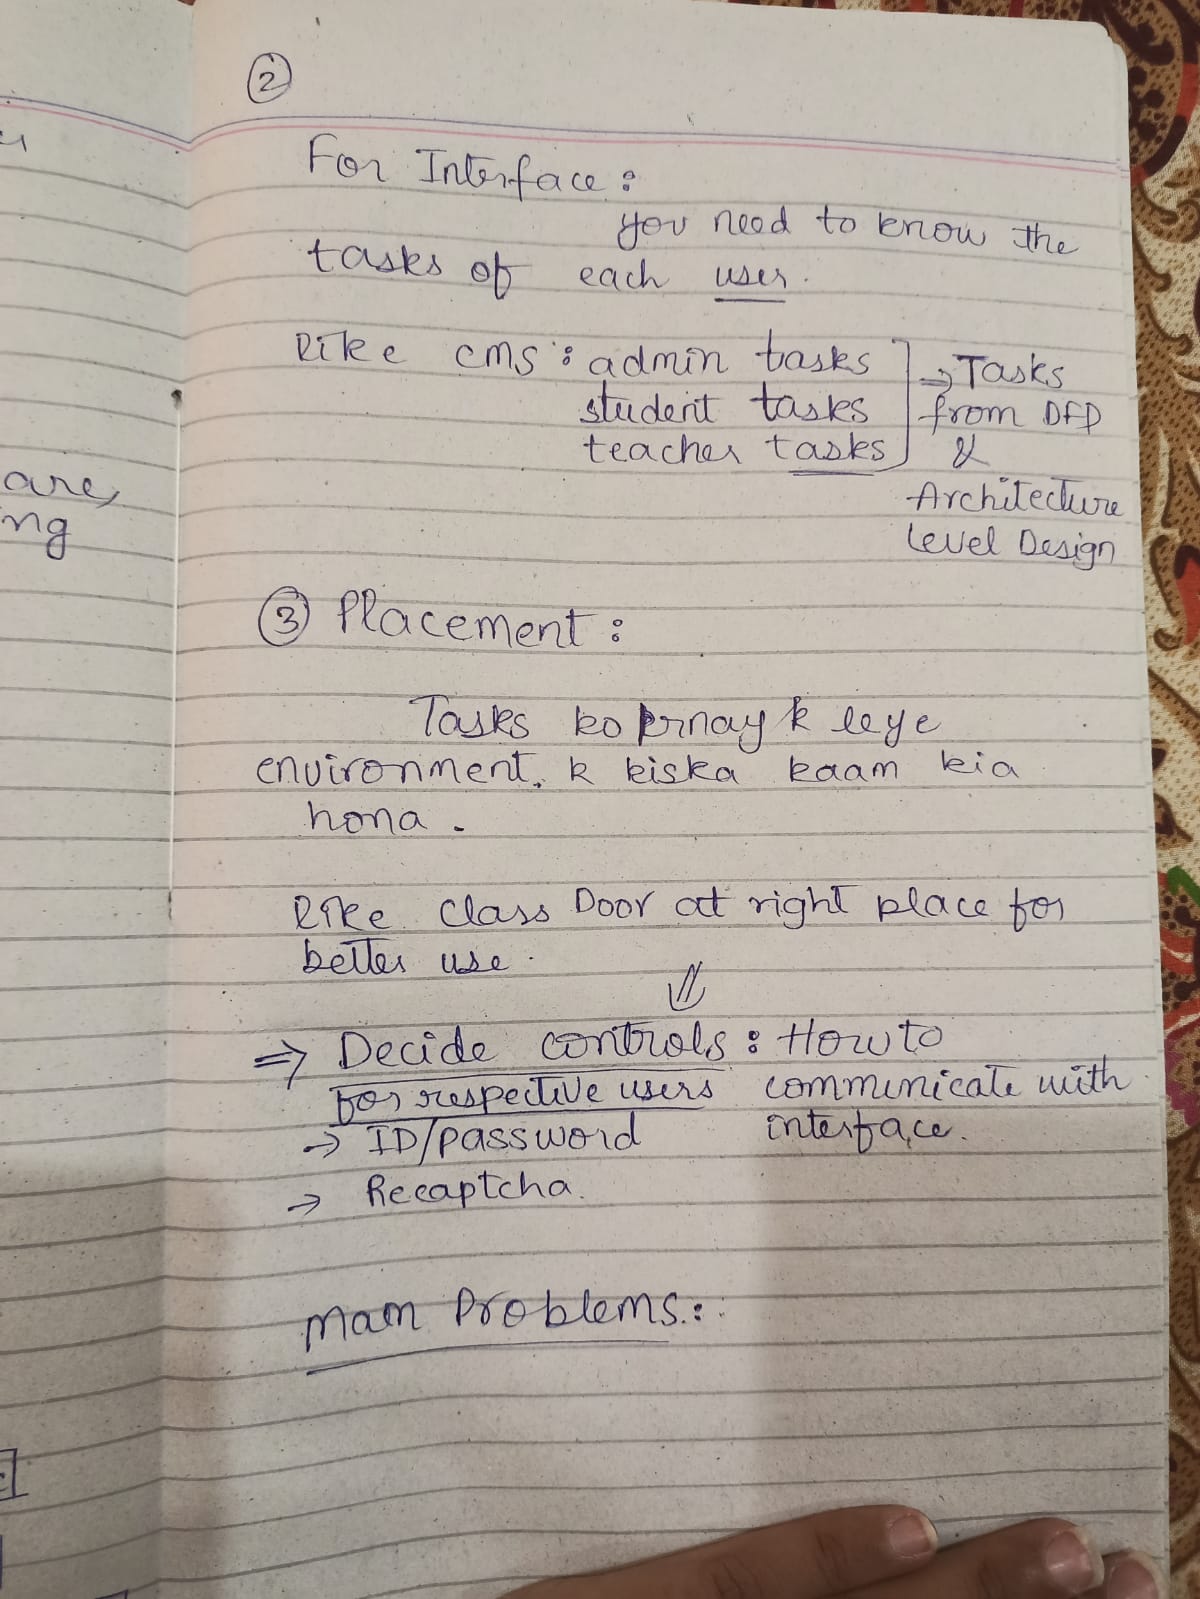 ②
For Interface:
you need to know the
tasks of each user.
Like cms: admin tasks
student tasks
teacher tasks
→ Tasks
from DFD
&
Architecture
Level Design
③ Placement:
Tasks ko krnay k leye
environment. k kiska kaam kia
hona.
Like Class Door at right place for
better use.
⇓
⇒ Decide controls: How to
for respective users communicate with
→ ID/password interface.
→ Recaptcha.
Main Problems:
are,
ng